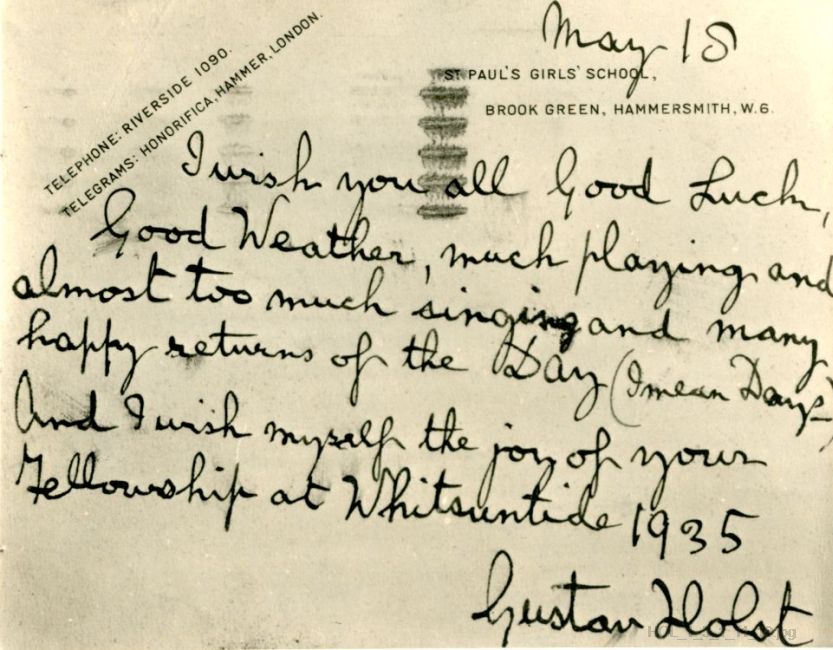 May 18
TELEPHONE: RIVERSIDE 1090.
TELEGRAMS: HONORIFICA, HAMMER, LONDON.
ST PAUL'S GIRLS' SCHOOL,
BROOK GREEN, HAMMERSMITH, W.6.
I wish you all Good Luck,
Good Weather, much playing and
almost too much singing and many
happy returns of the Day (I mean Days)
And I wish myself the joy of your
Fellowship at Whitsuntide 1935
Gustav Holst